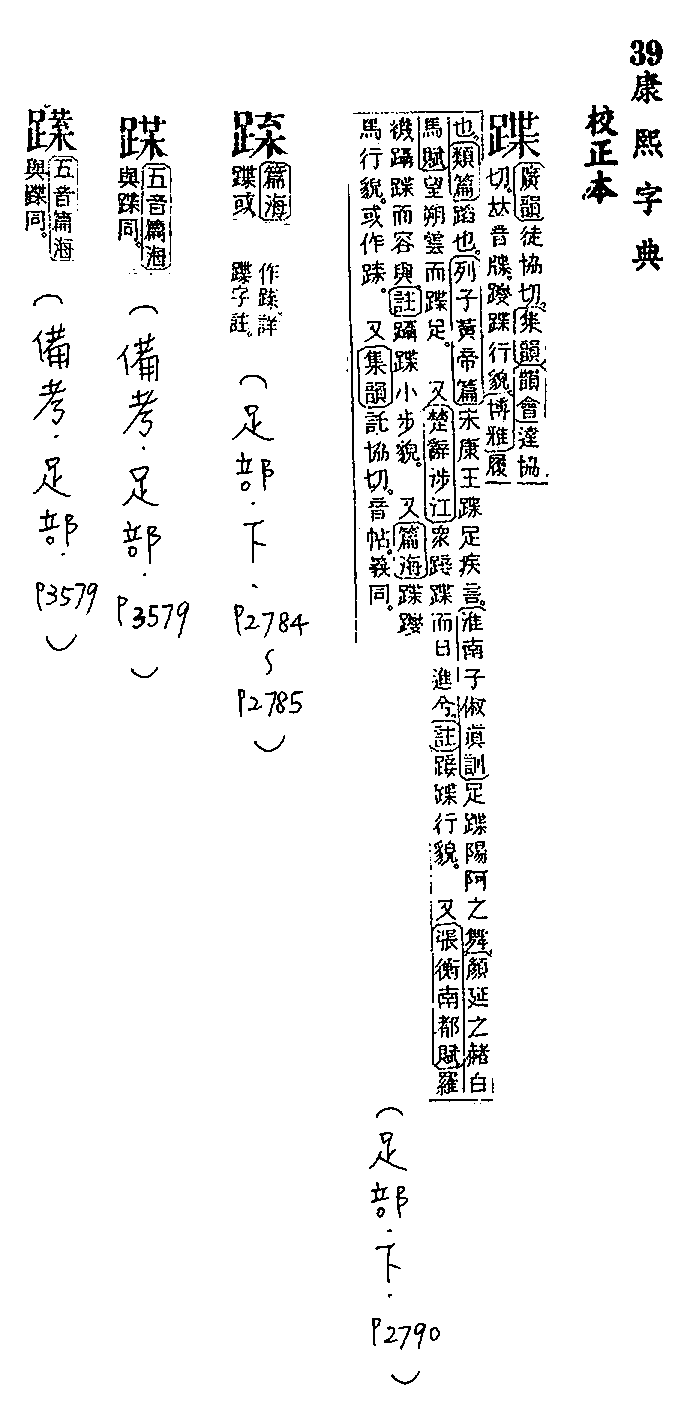 39康熙字典
校正本
蹀 廣韻徒協切。集韻韻會達協
切。𠀤音牒。躞蹀行貌。博雅履
也。類篇蹈也。列子黃帝篇宋康王蹀足疾言。淮南子俶眞訓足蹀陽阿之舞。顏延之赭白
馬賦望朔雲而蹀足。 又楚辭涉江眾踥蹀而日進兮。註踥蹀行貌。 又張衡南都賦羅
襪躡蹀而容與。註躡蹀小步貌。 又篇海蹀躞
馬行貌。或作。 又集韻託協切。音帖。義同。
(足部·下·P2790)
篇海
蹀或
作詳
蹀字註。
(足部·下·P2784~P2785)
五音篇海
與蹀同。
(備考·足部·P3579)
五音篇海
與蹀同。
(備考·足部·P3579)